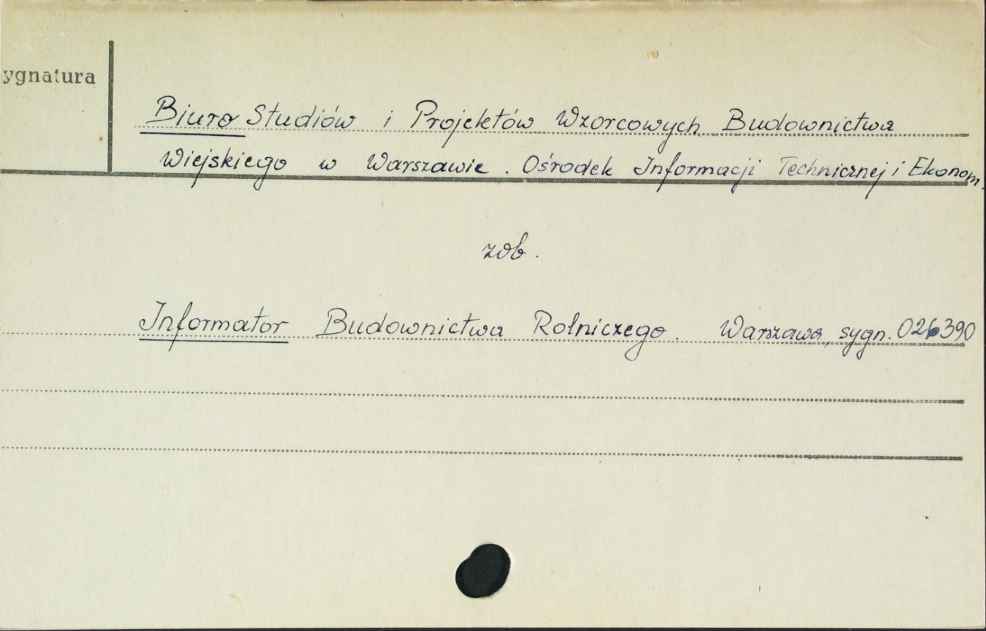 ygnatura
Biuro Studiów i Projektów Wzorcowych Budownictwa
Wiejskiego w Warszawie. Ośrodek Informacji Technicznej i Ekonom.
zob.
Informator Budownictwa Rolniczego. Warszawa, sygn. 026390